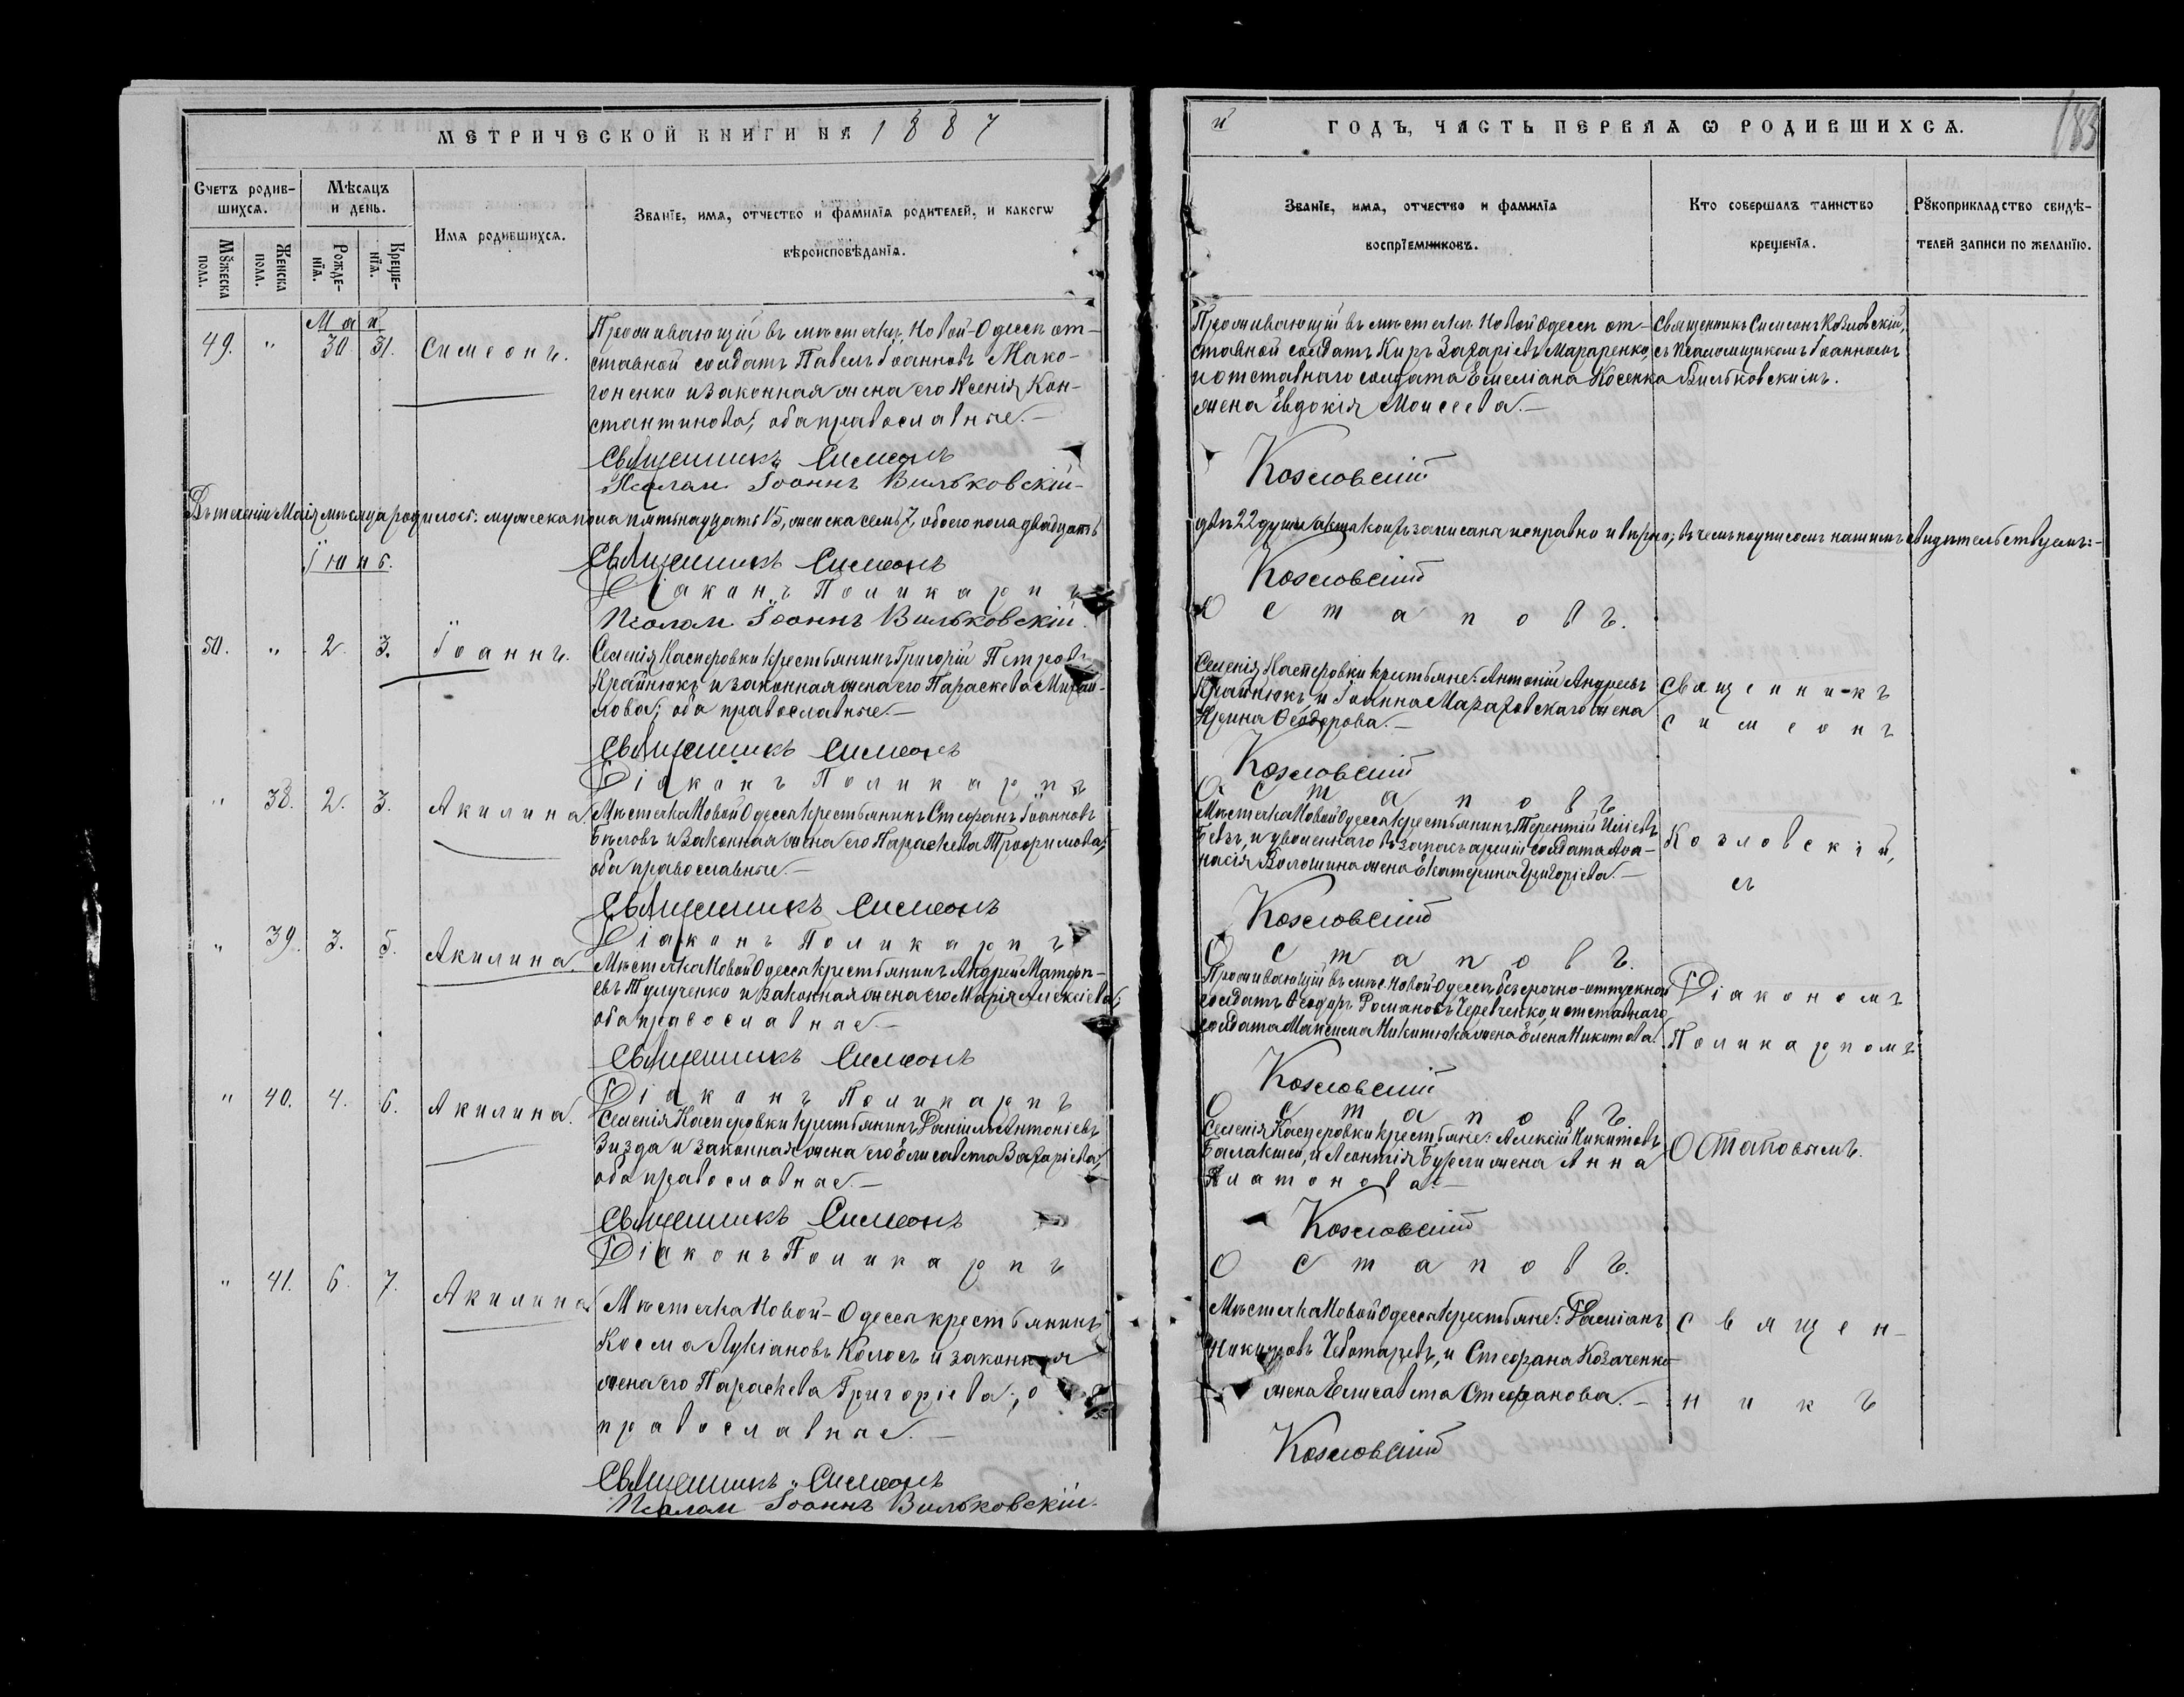 МЕТРИЧЕСКОЙ КНИГИ НА 1887
Счетъ родив-
шихся.
Мѣсяцъ
и день.
Имя родившихся.
Званіе, имя, отчество и фамилія родителей, и какогѡ
вѣроисповѣданія.
Мꙋжеска
пола.
Женска
пола.
Рожде-
нія.
Креще-
нія.
Май
49. " 30. 31. Симеонъ.
Проживающій въ мѣстечкѣ Новой-Одессѣ от-
ставной солдатъ Павелъ Іоанновъ Мако-
гоненко и законная жена его Ксенія Кон-
стантинова; оба православные.-
Священникъ Симеонъ
Псалом Іоаннъ Вильковскій-
Въ теченіи Маія мѣсяца родилось: мужеска пола пятьнадцать 15, женска семь 7, обоего пола двадцать
Іюнь.
Священникъ Симеонъ
Діаконъ Поликарпъ
Псалом Іоаннъ Вильковскій.
50. " 2. 3. Іоаннъ.
Селенія Касперовки крестьянинъ Григорій Петровъ
Крайнюкъ и законная жена его Параскева Михай-
лова; оба православные.-
Священникъ Симеонъ
Діаконъ Поликарпъ
" 38. 2. 3. Акилина.
Мѣстечка Новой Одессы крестьянинъ Стефанъ Іоанновъ
Бѣловъ и законная жена его Параскева Трофимова;
оба православные.-
Священникъ Симеонъ
Діаконъ Поликарпъ
" 39. 3. 5. Акилина.
Мѣстечка Новой Одессы крестьянинъ Андрей Матѳѣ-
евъ Тулученко и законная жена его Марія Алексіева;
оба православные.-
Священникъ Симеонъ
Діаконъ Поликарпъ
" 40. 4. 6. Акилина.
Селенія Касперовки крестьянинъ Даніилъ Антоніевъ
Визда и законная жена его Елисавета Захаріева;
оба православные.-
Священникъ Симеонъ
Діаконъ Поликарпъ
" 41. 6. 7. Акилина.
Мѣстечка Новой-Одессы крестьянинъ
Косма Лукіановъ Колосъ и законная
жена его Параскева Григоріева; о
православные.-
Священникъ Симеонъ
Псалом Іоаннъ Вильковскій.
и ГОДЪ, ЧАСТЬ ПЕРВАЯ Ѡ РОДИВШИХСЯ. 183
Званіе, имя, отчество и фамилія
воспріемниковъ.
Кто совершалъ таинство
крещенія.
Рꙋкоприкладство свидѣ-
телей записи по желанію.
Проживающій въ мѣстечкѣ Новой Одессѣ от-
ставной солдатъ Киръ Захаріевъ Мараренко,
и отставнаго солдата Емеліана Косенко
жена Евдокія Моисеева.-
Священникъ Симеонъ Козловскій,
съ псаломщикомъ Іоанномъ
Вильковскимъ.
Козловскій
двѣ 22 души записана исправно и вѣрно; въ чемъ подписомъ нашимъ свидѣтельствуемъ:-
Козловскій
Остаповъ.
Селенія Касперовки крестьяне: Антоній Андреевъ
Крайнюкъ, и Іоанна Мазаровскаго жена
Ирина Ѳеодорова.-
Козловскій
Остаповъ
Мѣстечка Новой Одессы крестьянинъ Терентій Иліевъ
Бевзъ, и уволеннаго въ запасъ арміи солдата Аѳа-
насія Волошина жена Екатерина Григоріева.-
Козловскій
Остаповъ.
Проживающій въ мѣс. Новой-Одессѣ безсрочно-отпускной
солдатъ Ѳеодоръ Романовъ Черевченко, и отставнаго
солдата Максима Никитюка жена Елена Никитова.
Козловскій
Остаповъ.
Селенія Касперовки крестьяне: Алексій Никитовъ
Балакшей, и Леонтія Бурли жена Анна
Платонова.-
Козловскій
Остаповъ.
Мѣстечка Новой Одессы крестьяне: Даміанъ
Никитовъ Чеботаревъ, и Стефана Козаченко
жена Елисавета Стефанова.-
Козловскій
Священникъ
Симеонъ
Козловскій,
съ
Діакономъ
Поликарпомъ
Остаповымъ.
Священ-
никъ